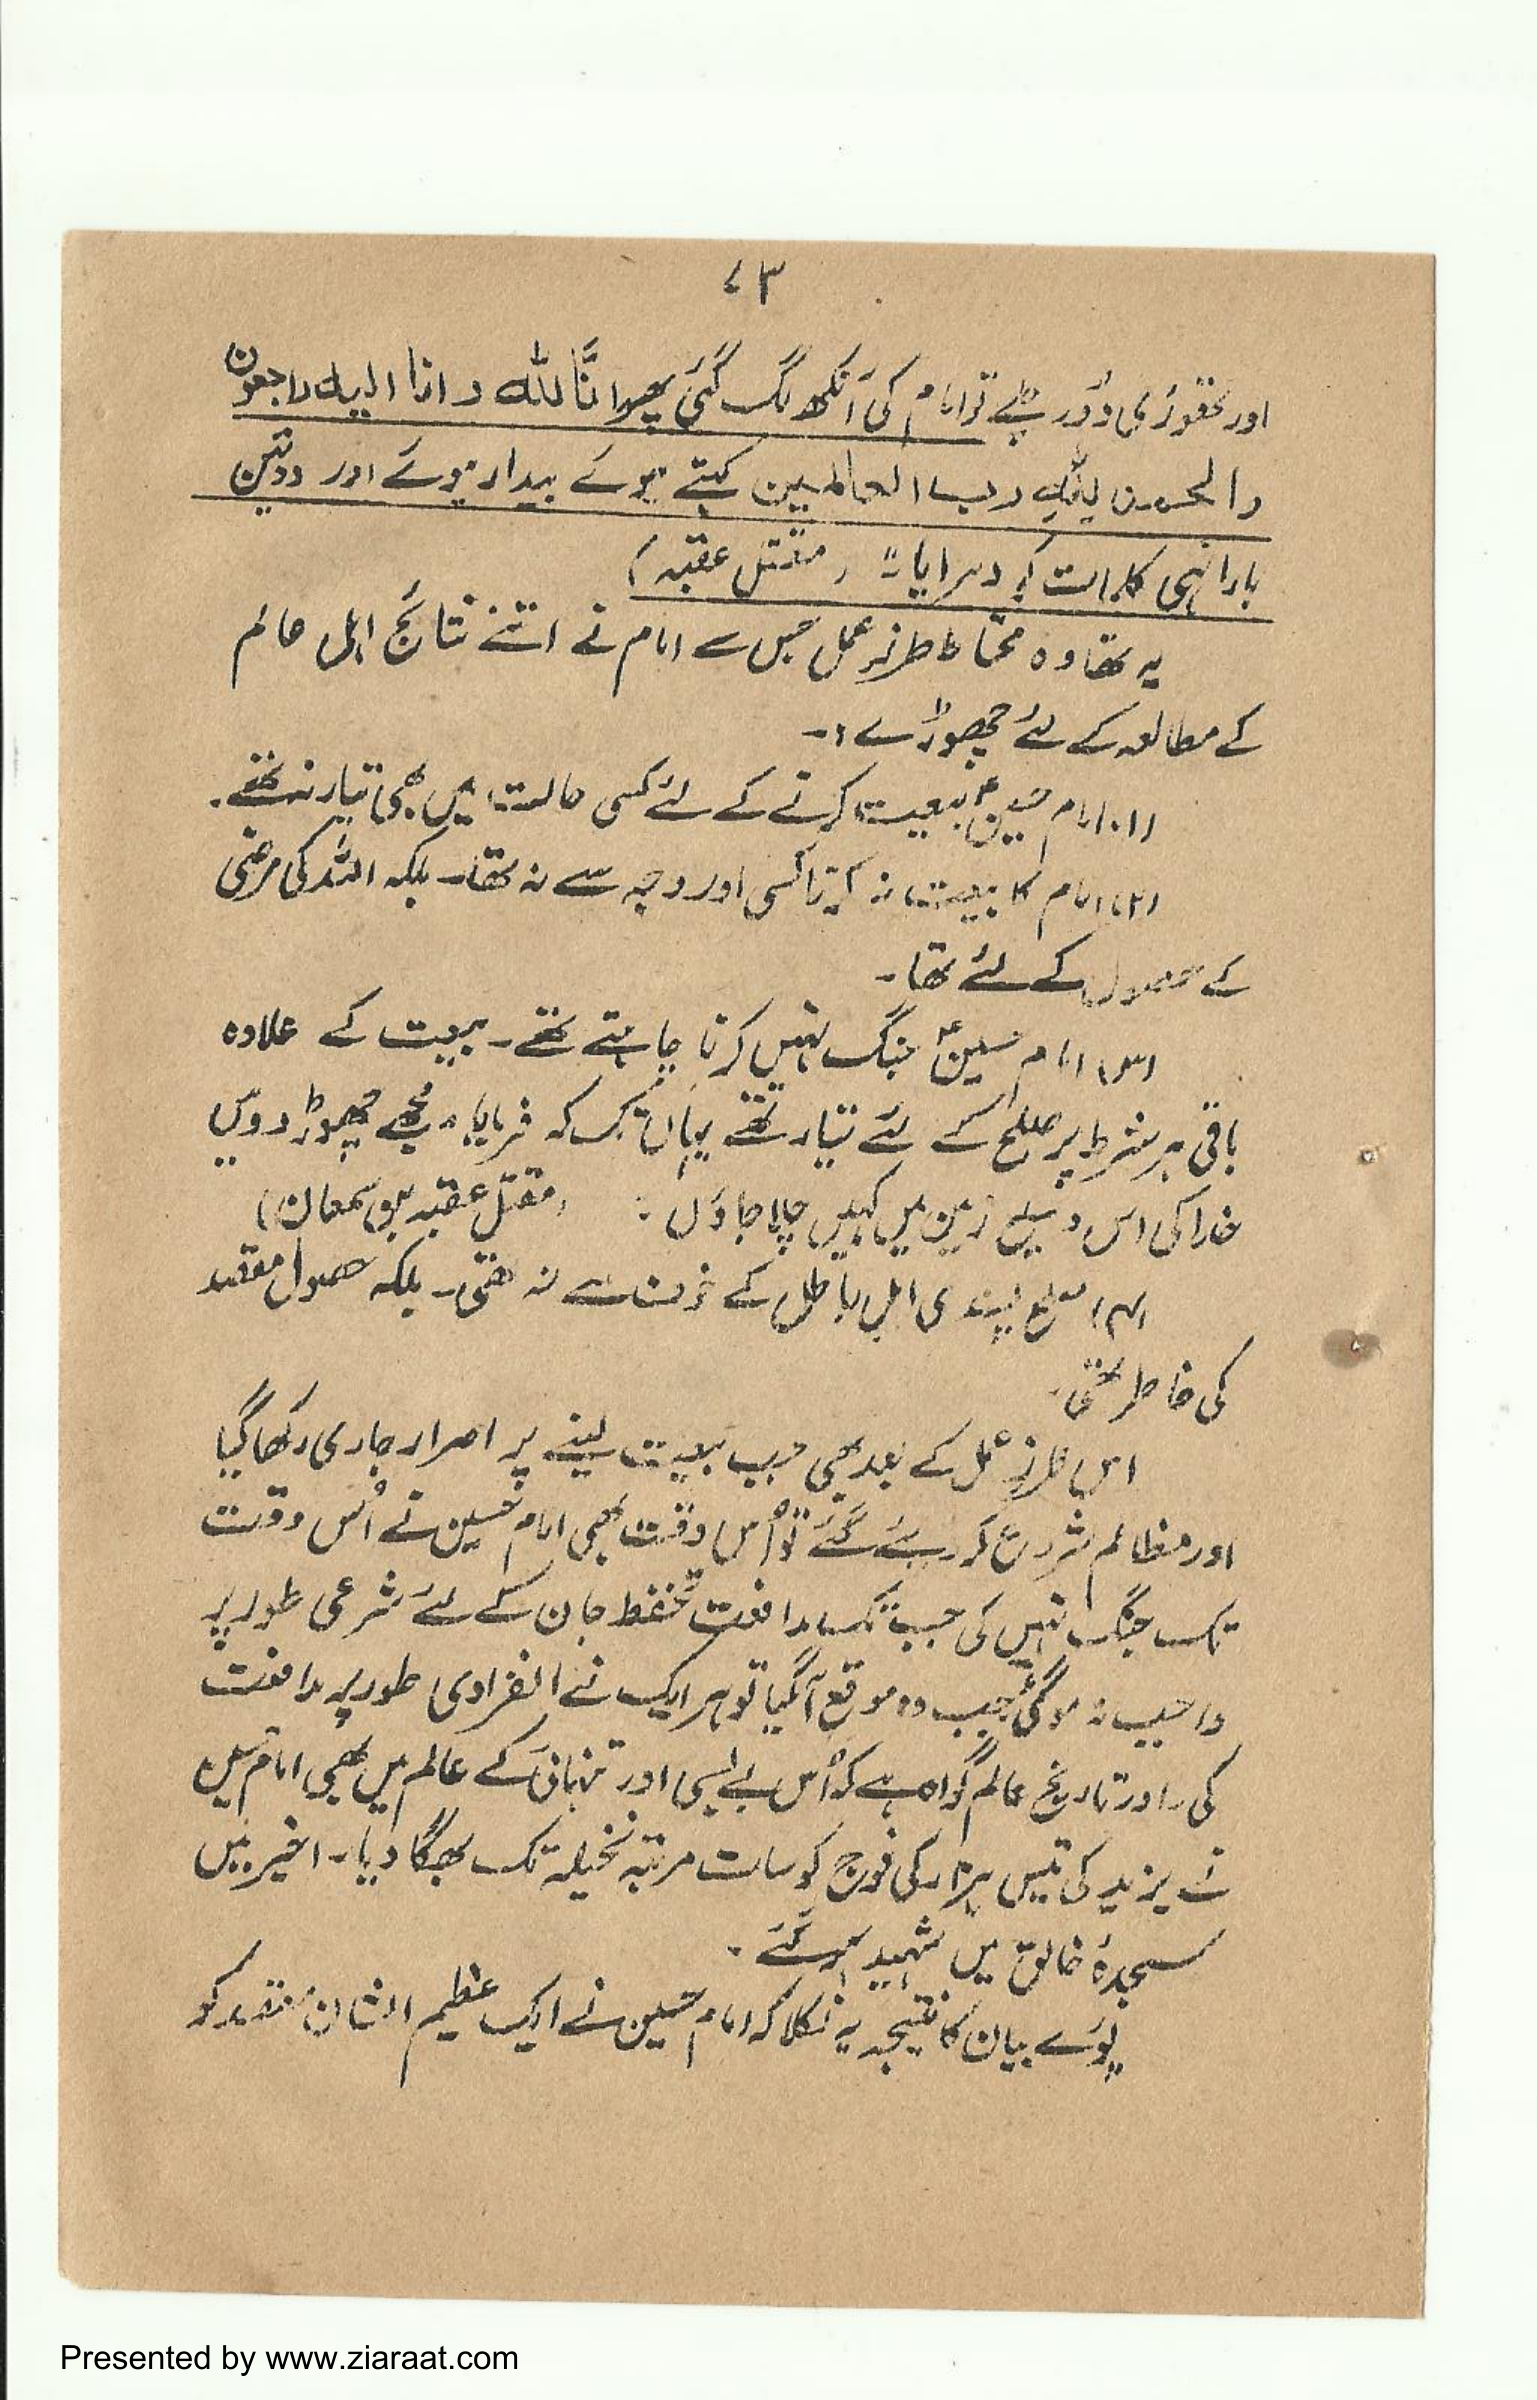 ۷۳
اور تھوڑی دُور چلے تو امام کی آنکھ لگ گئی پھر انَّا للہ و انا الیہ راجعون
والحمد للہِ رب العالمین کہتے ہوئے بیدار ہوئے اور دو تین
بار انہی کلمات کو دہرایا۔" (مقتل عقبہ)
یہ تھا وہ محتاط طرزِ عمل جس سے امام نے اتنے نتائج اہل عالم
کے مطالعہ کے لئے چھوڑے :۔
(۱) امام حسینؑ بیعت کرنے کے لئے کسی حالت میں بھی تیار نہ تھے۔
(۲) امام کا بیعت نہ کرنا کسی اور وجہ سے نہ تھا۔ بلکہ اللہ کی مرضی
کے حصول کے لئے تھا۔
(۳) امام حسینؑ جنگ نہیں کرنا چاہتے تھے۔ بیعت کے علاوہ
باقی ہر شرط پر صلح کے لئے تیار تھے یہاں تک کہ فرمایا "مجھے چھوڑ دو میں
خدا کی اس وسیع زمین میں کہیں چلا جاؤں" (مقتل عقبہ بن سمعان)
(۴) صلح پسندی اہلِ باطل کے خوف سے نہ تھی۔ بلکہ حصول مقصد
کی خاطر تھی۔
اس طرزِ عمل کے بعد بھی جب بیعت لینے پر اصرار جاری رکھا گیا
اور مظالم شروع کر دیئے گئے تو اُس وقت بھی امام حسین نے اُس وقت
تک جنگ نہیں کی جب تک مدافعت تحفظ جان کے لئے شرعی طور پر
واجب نہ ہو گئی جب وہ موقع آگیا تو ہر ایک نے انفرادی طور پر مدافعت
کی۔ اور تاریخ عالم گواہ ہے کہ اُس بے بسی اور تنہائی کے عالم میں بھی امام حسین
نے یزید کی تیس ہزار کی فوج کو سات مرتبہ نخیلہ تک بھگا دیا۔ اخیر میں
سجدۂ خالق میں شہید ہو گئے۔
پورے بیان کا نتیجہ یہ نکلا کہ امام حسین نے ایک عظیم الشان مقصد کو
Presented by www.ziaraat.com